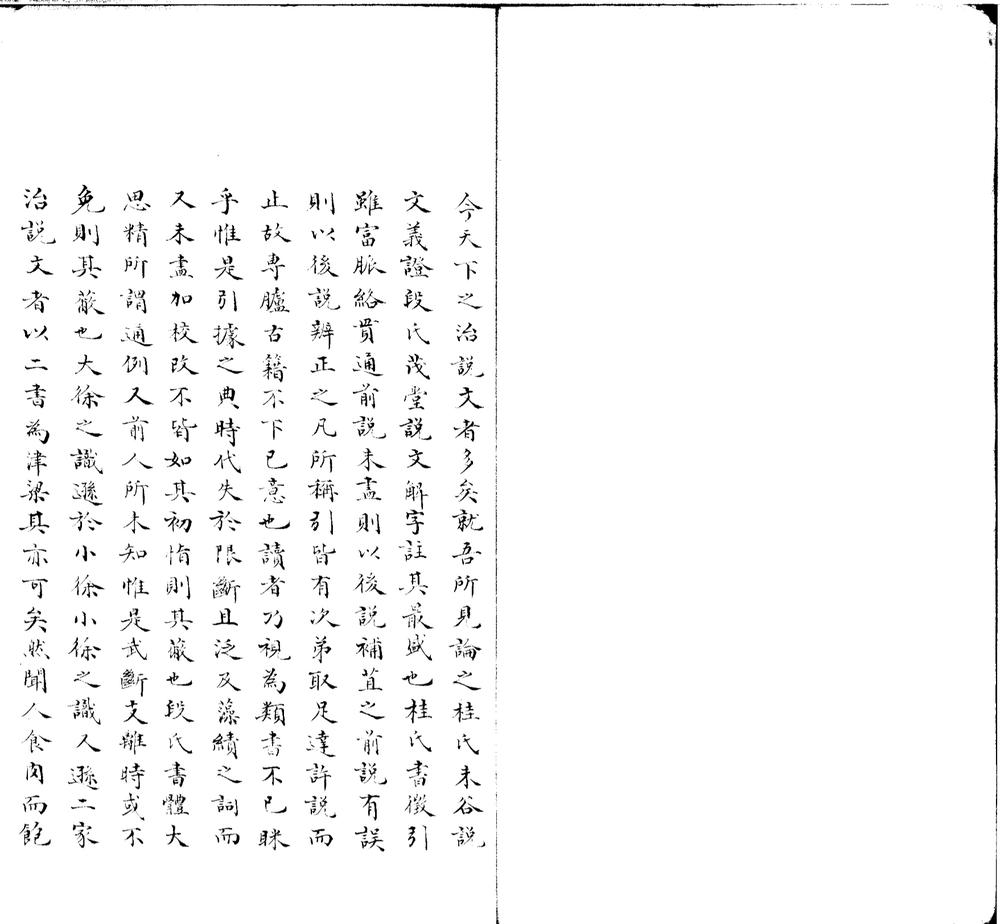 今天下之治説文者多矣就吾所見論之桂氏未谷説
文義證段氏茂堂説文解字註其最盛也桂氏書徵引
雖富脈絡貫通前説未盡則以後説補苴之前説有誤
則以後説辨正之凡所稱引皆有次第取足達許説而
止故專臚古籍不下己意也讀者乃視為類書不已眯
乎惟是引據之典時代失於限斷且泛及藻繢之詞而
又未盡加校改不皆如其初恉則其蔽也段氏書體大
思精所謂通例又前人所未知惟是武斷支離時或不
免則其蔽也大徐之識遜於小徐小徐之識又遜二家
治説文者以二書為津梁其亦可矣然聞人食肉而飽